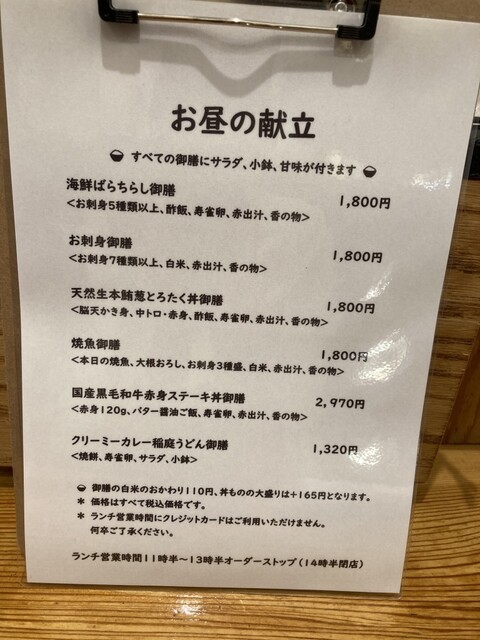 お昼の献立
すべての御膳にサラダ、小鉢、甘味が付きます
海鮮ばらちらし御膳 1,800円
<お刺身5種類以上、酢飯、寿雀卵、赤出汁、香の物>
お刺身御膳 1,800円
<お刺身7種類以上、白米、赤出汁、香の物>
天然生本鮪葱とろたく丼御膳 1,800円
<脳天かき身、中トロ・赤身、酢飯、寿雀卵、赤出汁、香の物>
焼魚御膳 1,800円
<本日の焼魚、大根おろし、お刺身3種盛、白米、赤出汁、香の物>
国産黒毛和牛赤身ステーキ丼御膳 2,970円
<赤身120g、バター醤油ご飯、寿雀卵、赤出汁、香の物>
クリーミーカレー稲庭うどん御膳 1,320円
<焼餅、寿雀卵、サラダ、小鉢>
御膳の白米のおかわり110円、丼ものの大盛りは+165円となります。
* 価格はすべて税込価格です。
* ランチ営業時間にクレジットカードはご利用いただけません。
何卒ご了承ください。
ランチ営業時間11時半～13時半オーダーストップ(14時半閉店)